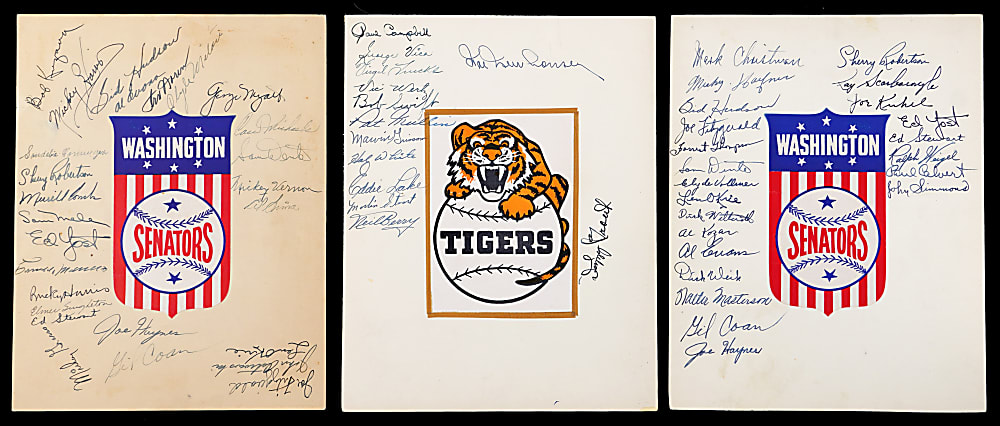 Bob Kuzava
Mickey Harris
Sid Hudson
Al Evans
Clyde McCullough
George Myatt
WASHINGTON
SENATORS
Sherry Robertson
Merrill Combs
Sam Mele
Ed Yost
Mickey Vernon
Bucky Harris
Elmer Singleton
Ed Stewart
Joe Haynes
Gil Coan
Len Okrie
Joe Fitzgerald
Dave Campbell
George Vico
Virgil Trucks
Vic Wertz
Bob Swift
Pat Mullin
Hal White
Eddie Lake
Marlin Stuart
Neil Berry
Hal Newhouser
TIGERS
Mark Christman
Sid Hudson
Joe Fitzgerald
Sam Dente
Clyde Vollmer
Len Okrie
Al Kozar
Al Evans
Dick Weik
Walter Masterson
Gil Coan
Joe Haynes
WASHINGTON
SENATORS
Sherry Robertson
Ray Scarborough
Joe Kuhel
Ed Yost
Ed Stewart
Ralph Weigel
Paul Calvert
John Simmons